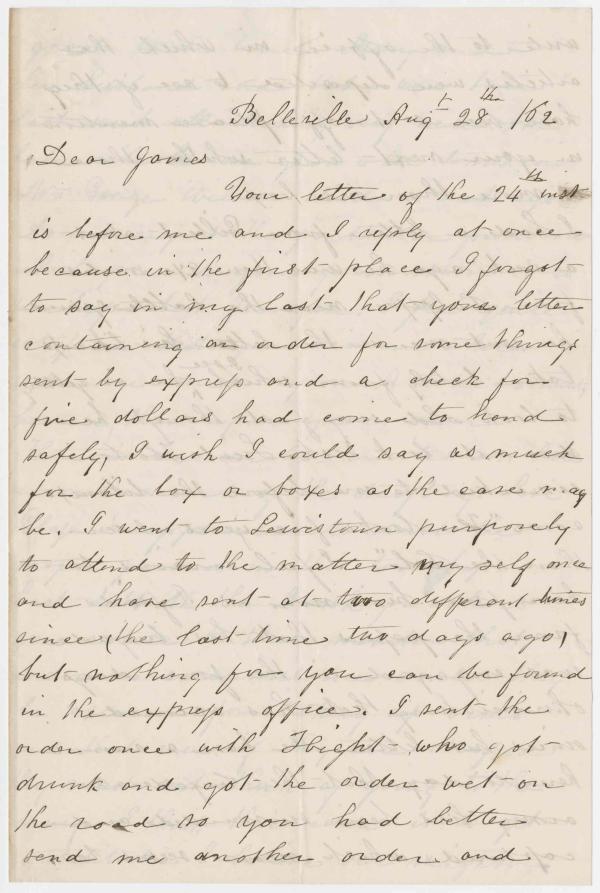 Belleville Augt 28th /62
Dear James
Your letter of the 24th inst
is before me and I reply at once
because in the first place I forgot
to say in my last that your letter
containing an order for some things
sent by express and a check for
five dollars had come to hand
safely, I wish I could say as much
for the box or boxes as the case may
be. I went to Lewistown purposely
to attend to the matter my self once
and have sent at two different times
since (the last time two days ago)
but nothing for you can be found
in the express office. I sent the
order once with Hight who got
drunk and got the order wet on
the road so you had better
send me another order and